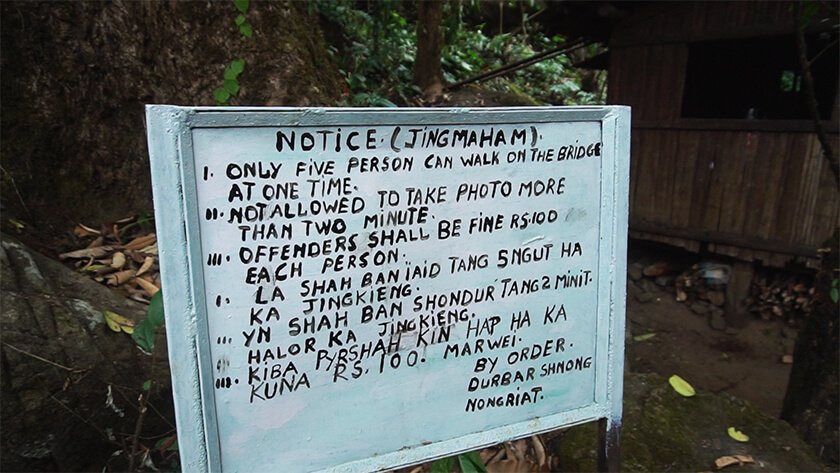 NOTICE.(JINGMAHAM).
I. ONLY FIVE PERSON CAN WALK ON THE BRIDGE
AT ONE TIME.
II. NOT ALLOWED TO TAKE PHOTO MORE
THAN TWO MINUTE.
III. OFFENDERS SHALL BE FINE RS.100
EACH PERSON.
I. LA SHAH BAN ÏAID TANG 5NGUT HA
KA JINGKIENG.
II. YN SHAH BAN SHONDUR TANG 2 MINIT.
HALOR KA JINGKIENG.
III. KIBA PYRSHAH KIN HAP HA KA
KUNA RS. 100. MARWEI.
BY ORDER.
DURBAR SHNONG
NONGRIAT.